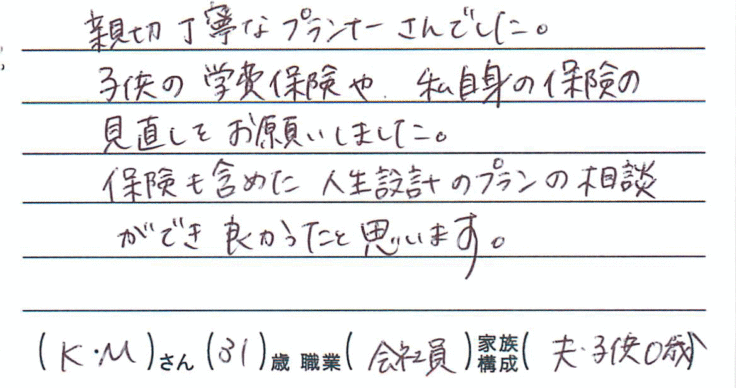 親切丁寧なプランナーさんでした。
子供の学費保険や私自身の保険の
見直しをお願いしました。
保険も含めた人生設計のプランの相談
ができ良かったと思います。
(K・M)さん(31)歳 職業(会社員)家族構成(夫・子供0歳)